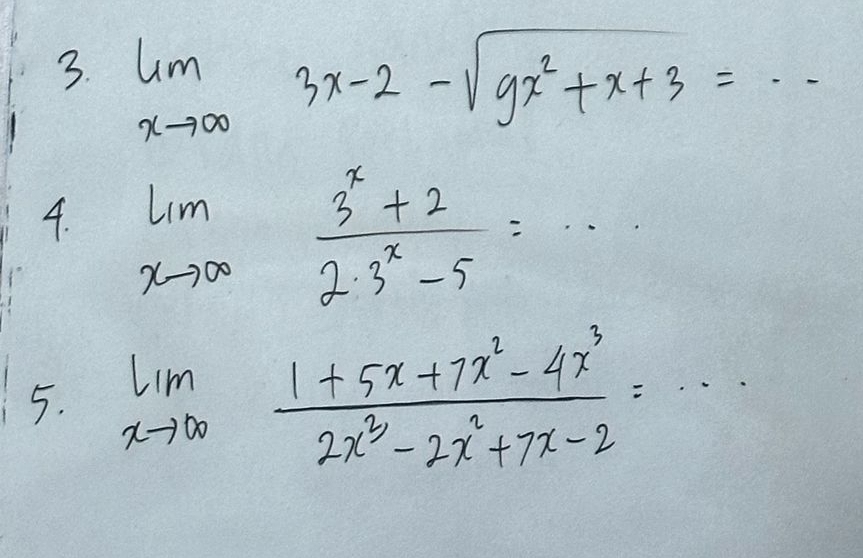 3. lim x→∞ 3x-2 - √(9x² + x + 3) = . . .
4. Lim x→∞ (3ˣ + 2)/(2·3ˣ - 5) = . . . .
5. Lim x→∞ (1 + 5x + 7x² - 4x³)/(2x³ - 2x² + 7x - 2) = . . .